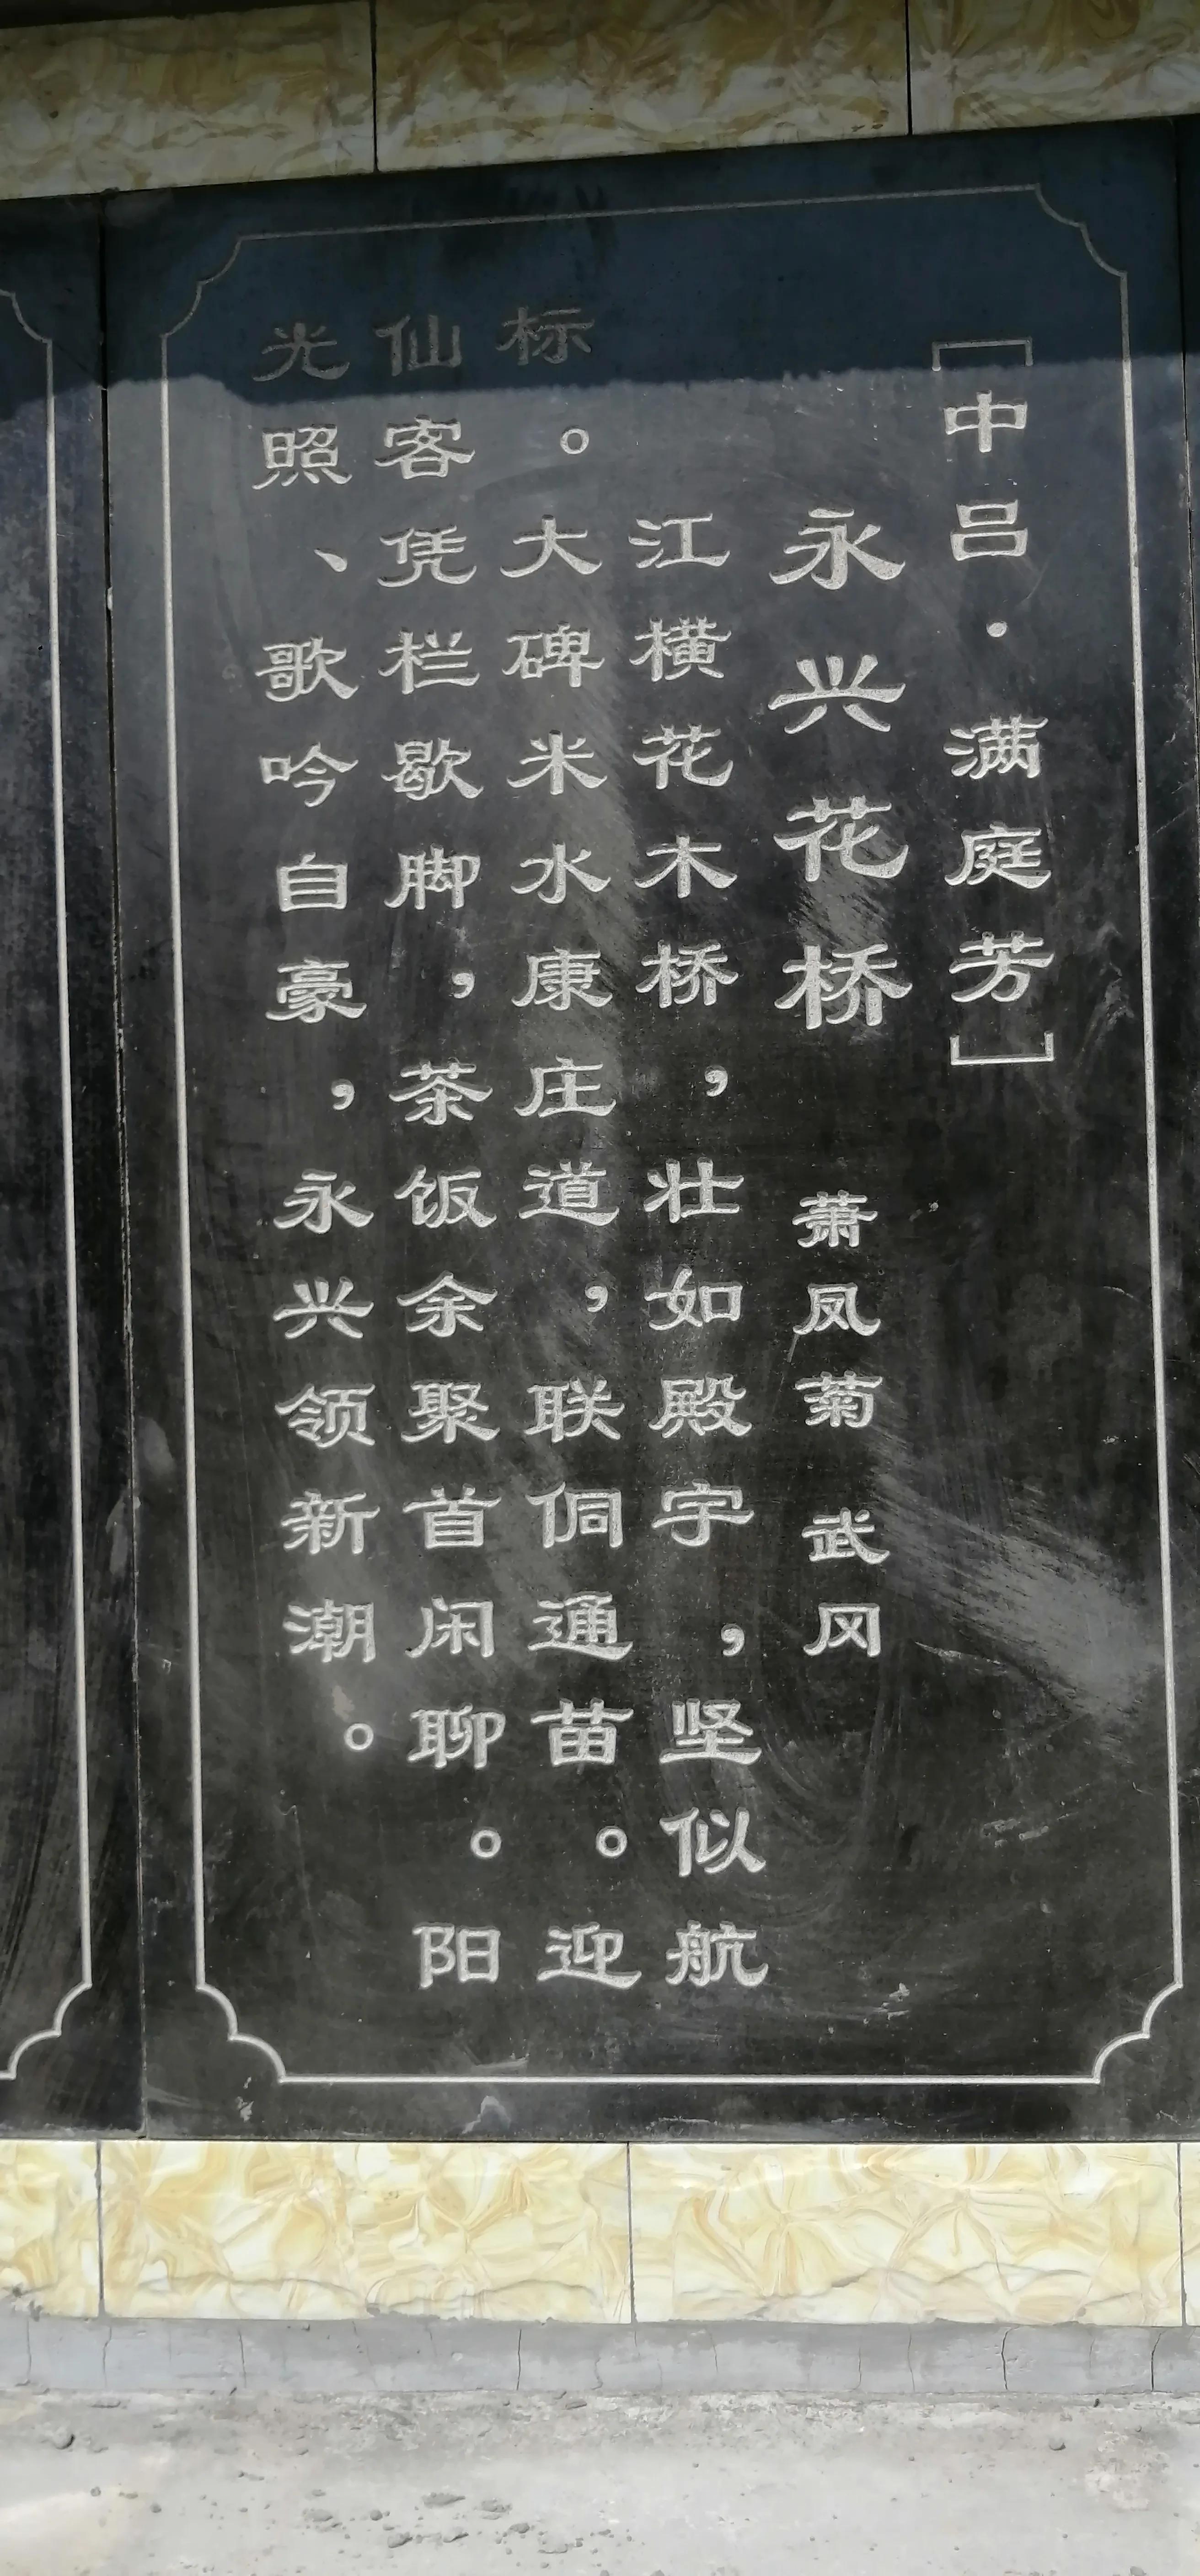 ［中吕·满庭芳］
永兴花桥 萧凤菊 武冈
江横花木桥，壮如殿宇，坚似航
标。大碑米水康庄道，联侗通苗。迎
仙客凭栏歇脚，茶饭余聚首闲聊。阳
光照、歌吟自豪，永兴领新潮。